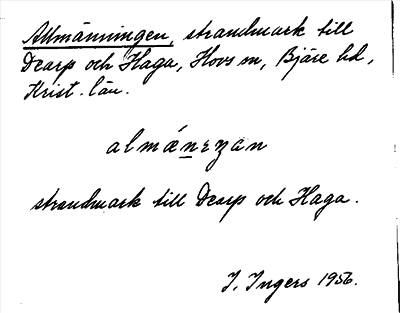 Allmänningen, strandmark till
Dearp och Haga, Hovs sn, Bjäre hd,
Krist. län.
strandmark till Dearp och Haga.
I. Ingers 1956.